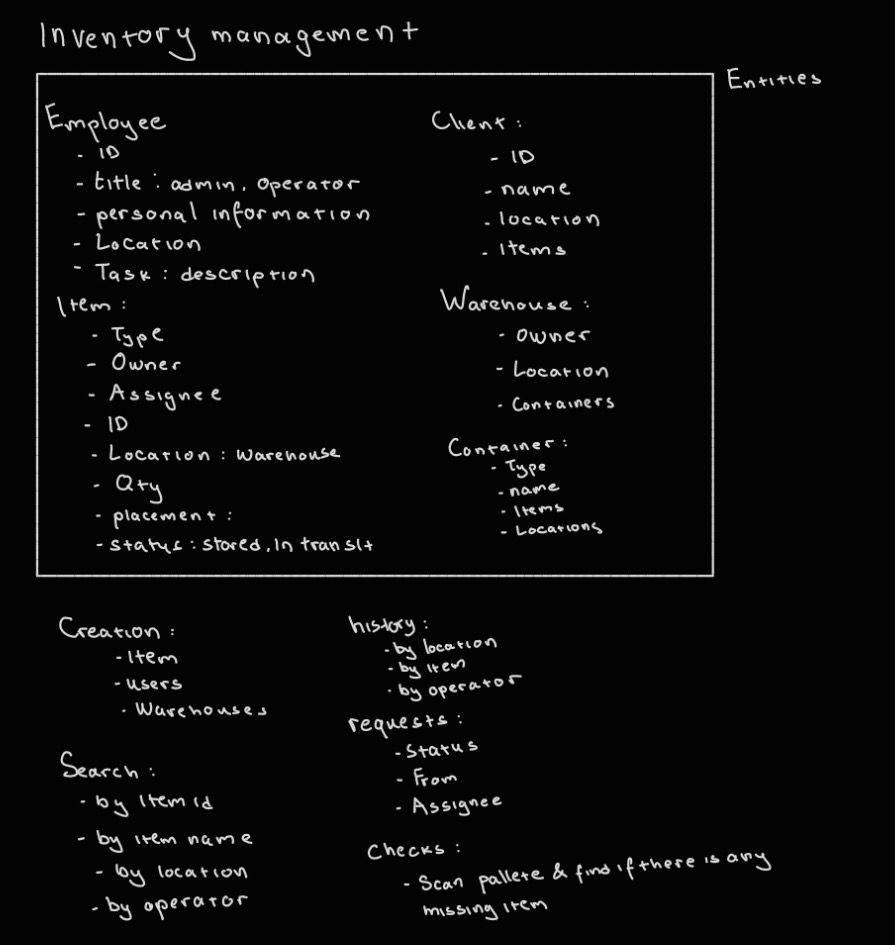 Inventory management
Entities
Employee
- ID
- title : admin, operator
- personal information
- Location
- Task : description
Item :
- Type
- Owner
- Assignee
- ID
- Location : warehouse
- Qty
- placement :
- status : stored, In transit
Client :
- ID
- name
- location
- Items
Warehouse :
- Owner
- Location
- Containers
Container :
- Type
- name
- Items
- Locations
Creation :
- Item
- users
- Warehouses
Search :
- by Item id
- by item name
- by location
- by operator
history :
- by location
- by item
- by operator
requests :
- Status
- From
- Assignee
Checks :
- Scan pallete & find if there is any
missing item